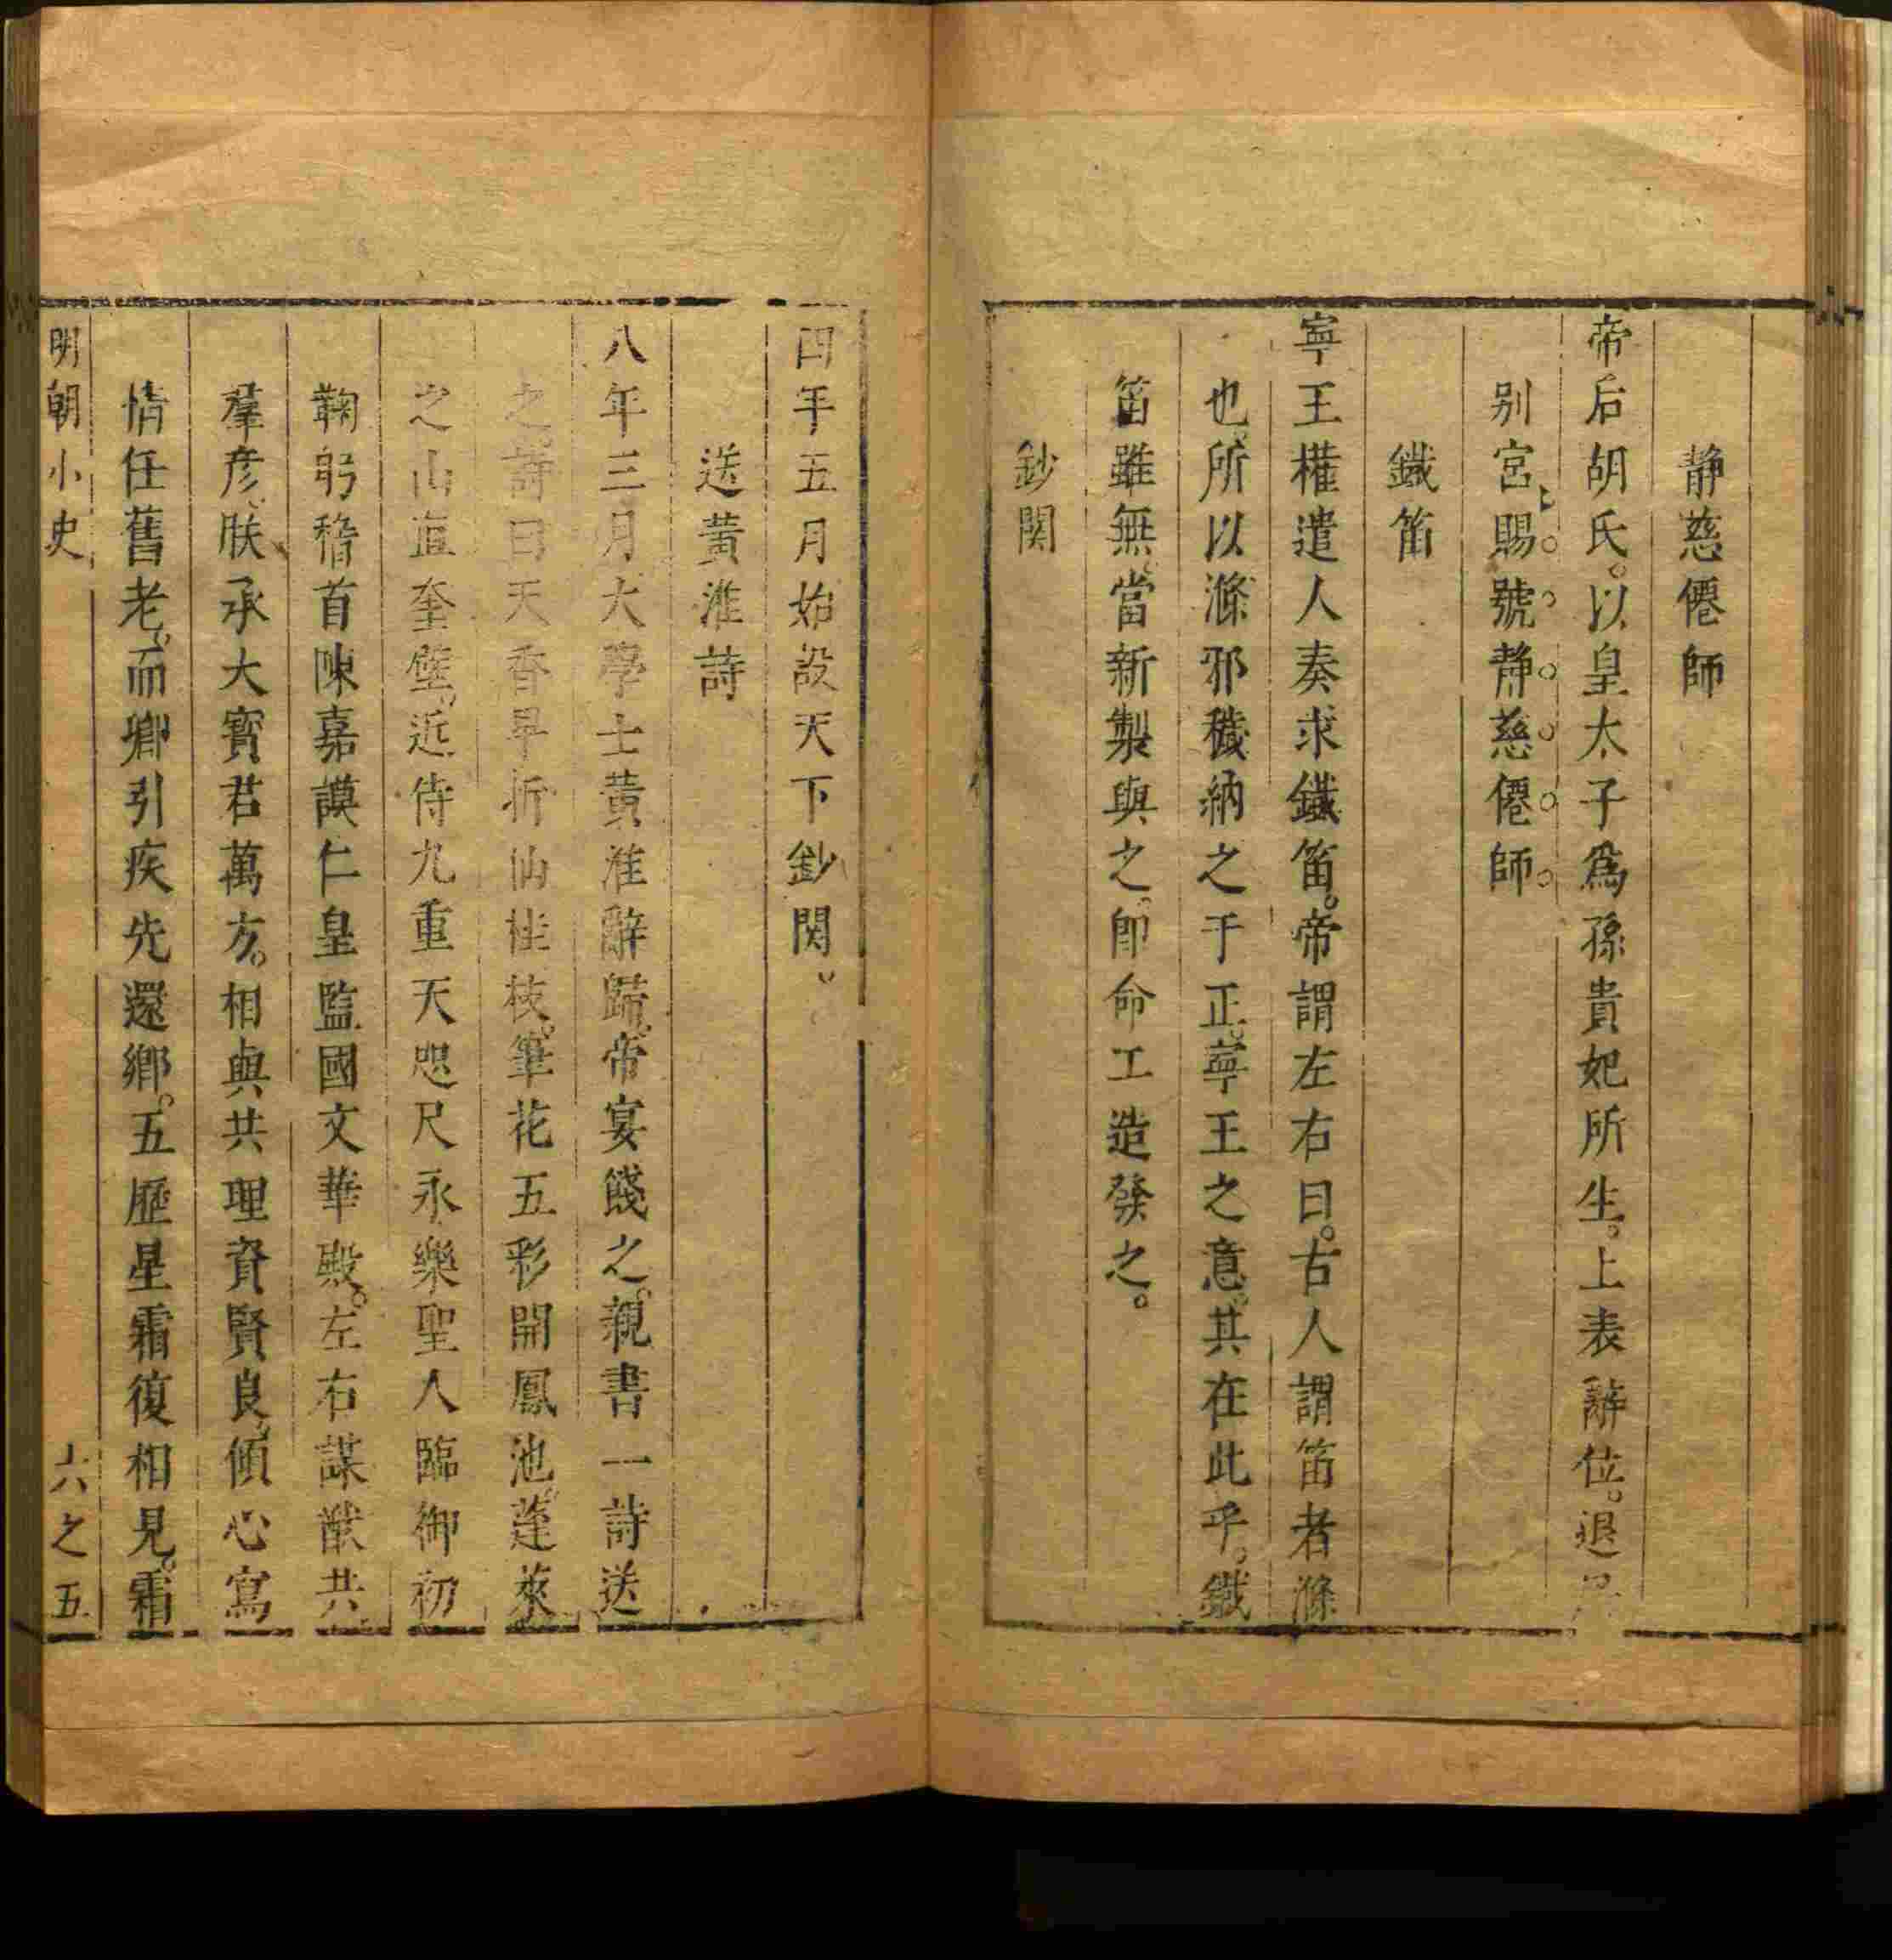 静慈僊師
帝后胡氏。以皇太子爲孫貴妃所生。上表辭位。退居
别宮。賜號静慈僊師。
鐵笛
寧王權遣人奏求鐵笛。帝謂左右曰。古人謂笛者滌
也。所以滌邪穢納之于正。寧王之意。其在此乎。鐵
笛雖無。當新製與之。卽命工造發之。
鈔関
四年五月始設天下鈔関。
送黃淮詩
八年三月大學士黃淮辭歸。帝宴餞之。親書一詩送
之。詩曰天香早折仙桂枝。筆花五彩開鳳池。蓬萊
之山直奎壁。近侍九重天咫尺永樂聖人臨御初
鞠躬稽首陳嘉謨仁皇監國文華殿。左右謀猷共
羣彥。朕承大寶君萬方。相與共理資賢良。傾心寫
情任舊老。而卿引疾先還鄉。五歷星霜復相見。霜
明朝小史
六之五